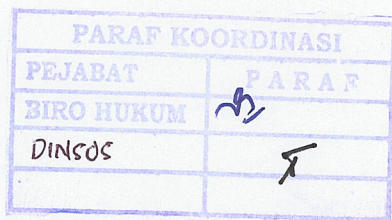 PARAF KOORDINASI
PEJABAT PARAF
BIRO HUKUM
DINSOS